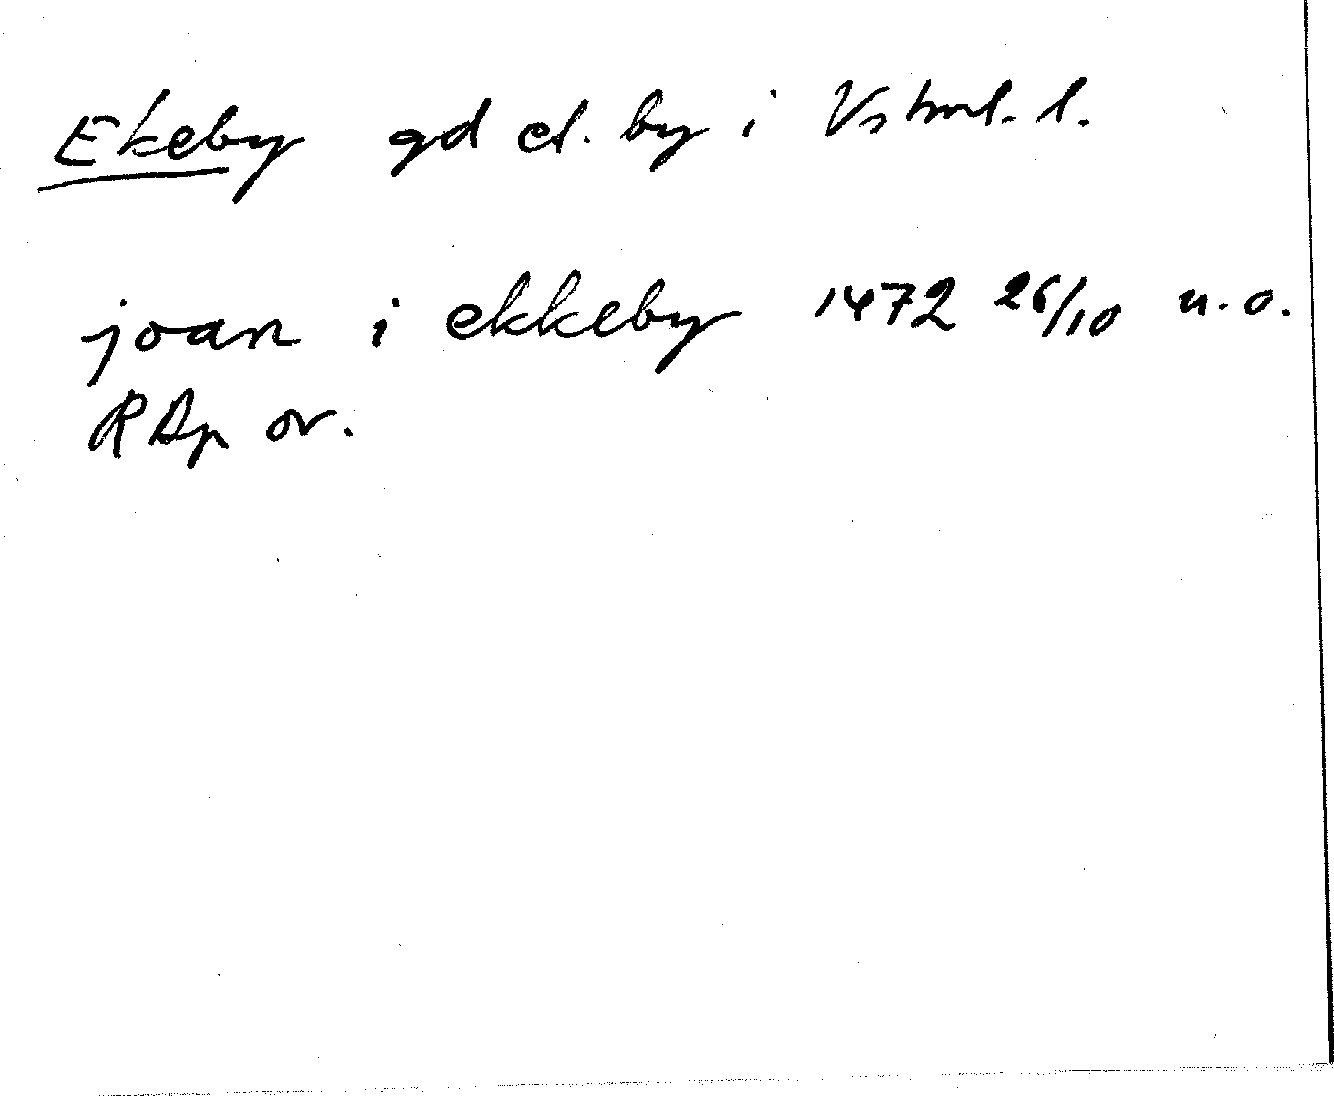 Ekeby gd el. by i Vstml. l.
joan i ekkeby 1472 26/10 u.o.
RAp or.